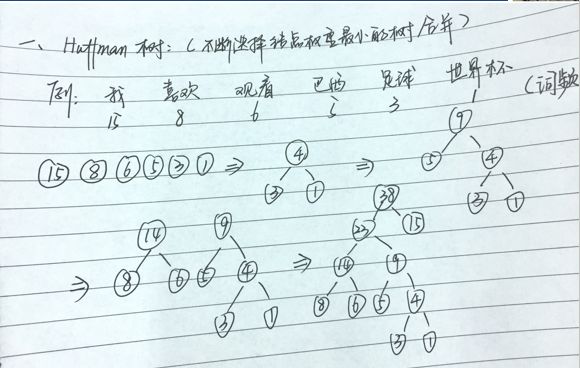 一、Huffman树：（不断选择结点权重最小的树合并）
例：我 喜欢 观看 巴西 足球 世界杯
15 8 6 5 3 1 （词频
⑮ ⑧ ⑥ ⑤ ③ ① ⇒ 4 ⇒ 9
3 1 5 4
3 1
⇒ 14 9 ⇒ 38
8 6 5 4 23 15
3 1 14 9
8 6 5 4
3 1